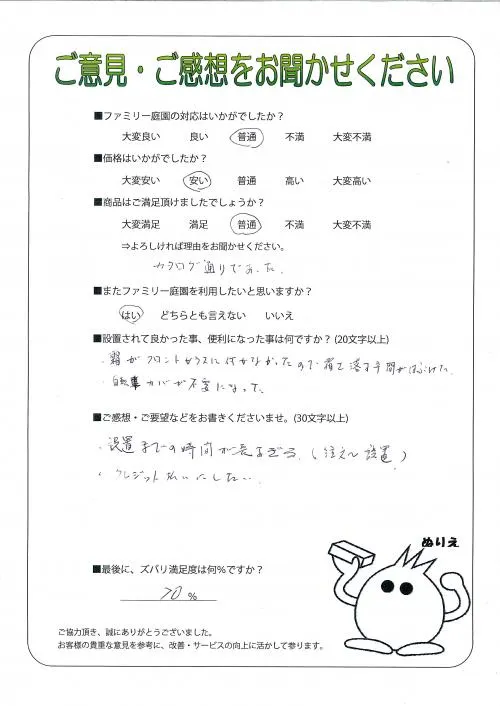 ご意見・ご感想をお聞かせください
■ファミリー庭園の対応はいかがでしたか？
大変良い 良い 普通 不満 大変不満
■価格はいかがでしたか？
大変安い 安い 普通 高い 大変高い
■商品はご満足頂けましたでしょうか？
大変満足 満足 普通 不満 大変不満
⇒よろしければ理由をお聞かせください。
カタログ通りであった。
■またファミリー庭園を利用したいと思いますか？
はい どちらとも言えない いいえ
■設置されて良かった事、便利になった事は何ですか？(20文字以上)
・霜がフロントガラスに付かなかったので 落す手間がはぶけた。
・自転車カバーが不要になった。
■ご感想・ご要望などをお書きくださいませ。(30文字以上)
・設置までの時間が長すぎる。(注文〜設置)
・クレジット払いにしたい。
ぬりえ
■最後に、ズバリ満足度は何%ですか？
70 %
ご協力頂き、誠にありがとうございました。
お客様の貴重な意見を参考に、改善・サービスの向上に活かして参ります。